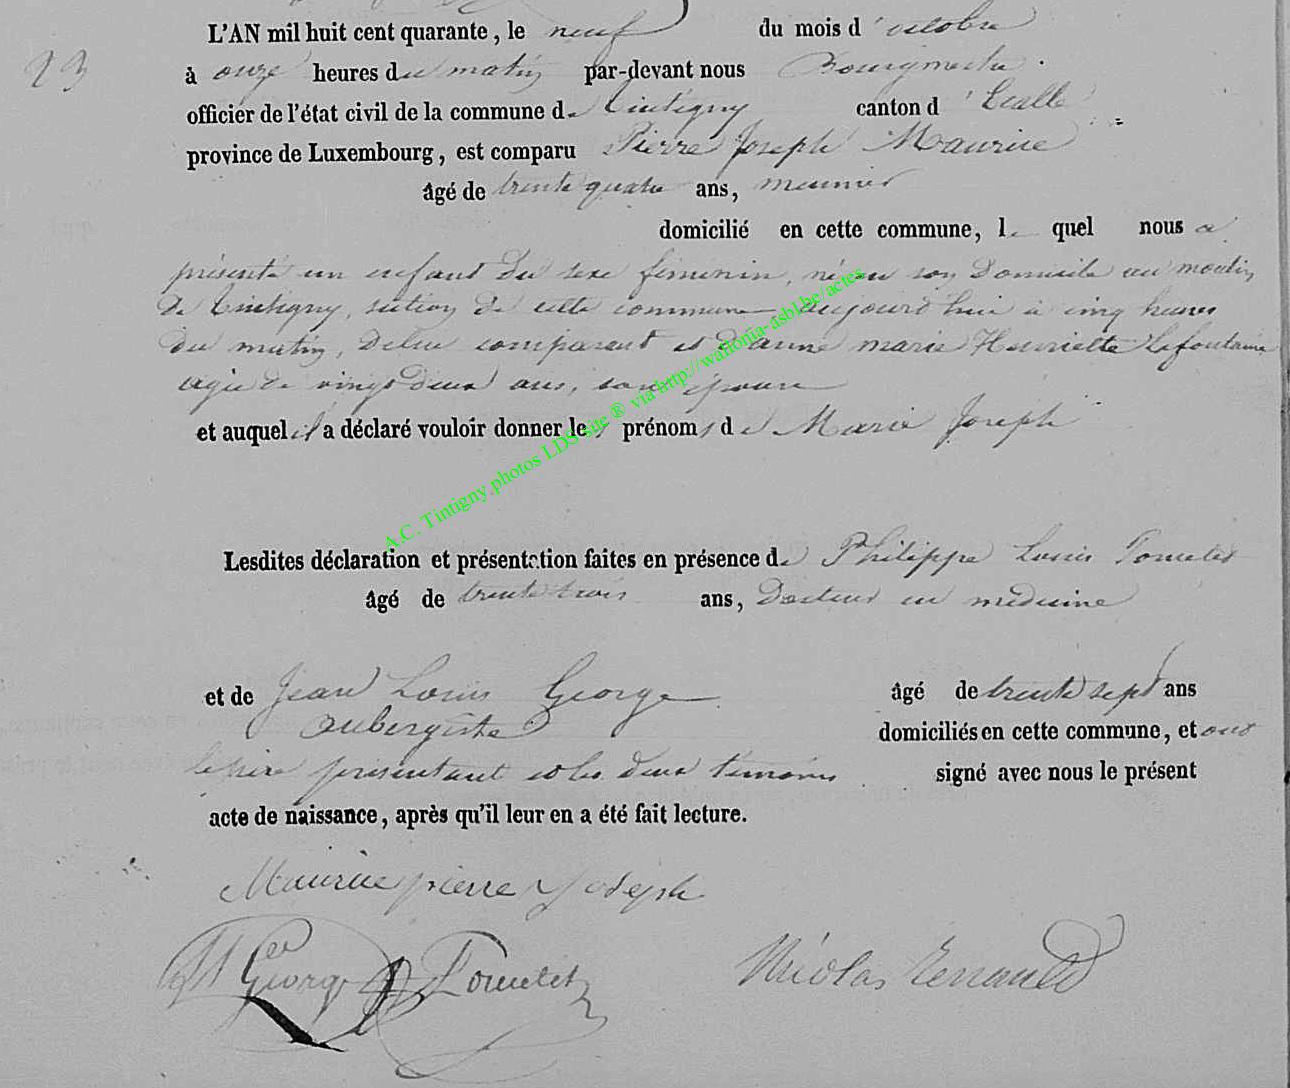 L'AN mil huit cent quarante, le neuf du mois d'octobre
23
à onze heures du matin par-devant nous Bourgmestre
officier de l'état civil de la commune de Tintigny canton d'Etalle
province de Luxembourg, est comparu Pierre Joseph Maurice
âgé de trente quatre ans, meunier
domicilié en cette commune, lequel nous a
présenté un enfant du sexe féminin, né en son domicile au moulin
de Tintigny, section de cette commune aujourd'hui à cinq heures
du matin, de lui comparant et d'anne marie Henriette Lafontaine
agée de vingt deux ans, son épouse
et auquel il a déclaré vouloir donner les prénoms de Marie Joseph
A.C. Tintigny.photos LDS site ® via http://wallonia-asbl.be/actes
Lesdites déclaration et présentation faites en présence de Philippe Louis Poncelet
âgé de trente trois ans, Docteur en médecine
et de Jean Louis George âgé de trente sept ans
aubergiste domiciliés en cette commune, et ont
le père présentant et les deux témoins signé avec nous le présent
acte de naissance, après qu'il leur en a été fait lecture.
Maurice pierre Joseph
George Poncelet Nicolas Renauld